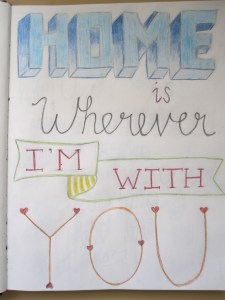 HOME
is
Wherever
I'M
WITH
YOU